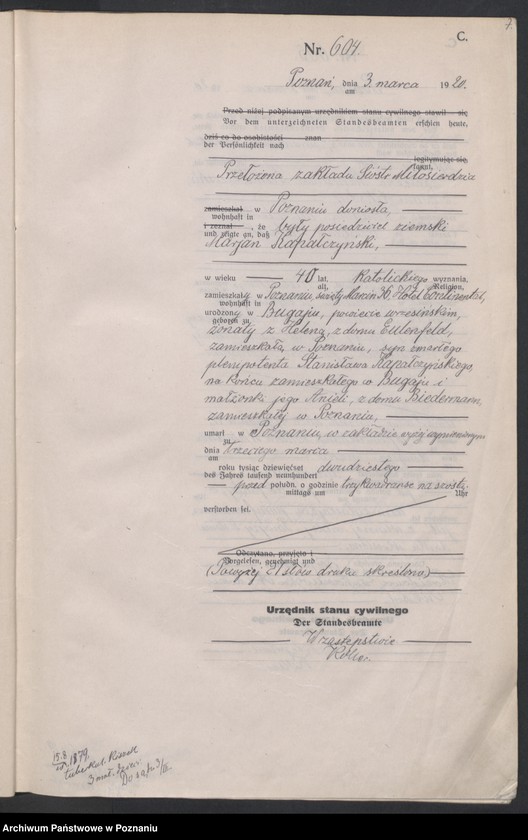 7.
C.
Nr. 604.
Poznań, dnia 3. marca 1920.
am
Przed niżej podpisanym urzędnikiem stanu cywilnego stawił się
Vor dem unterzeichneten Standesbeamten erschien heute,
dziś co do osobistości znan
der Persönlichkeit nach
legitymując się,
kannt,
Przełożona zakładu Sióstr Miłosierdzia
zamieszkał w Poznaniu doniosła,
wohnhaft in
i zeznał, że były posiedziciel ziemski
und zeigte an, daß
Marjan Kapałczyński,
w wieku 40 lat, katolickiego wyznania,
alt, Religion,
zamieszkały w Poznaniu, święty Marcin 36, Hotel Continental,
wohnhaft in
urodzony w Bugaju, powiecie wrzesińskim,
geboren zu
żonaty z Heleną, z domu Eulenfeld,
zamieszkałą w Poznaniu, syn zmarłego
plenipotenta Stanisława Kapałczyńskiego,
na końcu zamieszkałego w Bugaju i
małżonki jego Anieli, z domu Biedermann,
zamieszkałej w Poznaniu,
umarł w Poznaniu, w zakładzie wyżej wymienionym
zu
dnia trzeciego marca
am
roku tysiąc dziewięćset dwudziestego
des Jahres tausend neunhundert
przed połudn. o godzinie trzy kwadranse na szóstą
mittags um Uhr
verstorben sei.
Odczytano, przyjęto i
Vorgelesen, genehmigt und
(Powyżej 21 słów druku skreślono)
Urzędnik stanu cywilnego
Der Standesbeamte
W zastępstwie
15.8. 1879.
tuberkul.
3 mał. dzieci
Archiwum Państwowe w Poznaniu